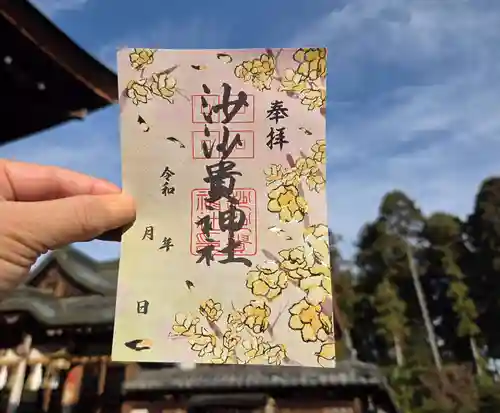 奉拝
沙沙貴神社
令和
年
月
日